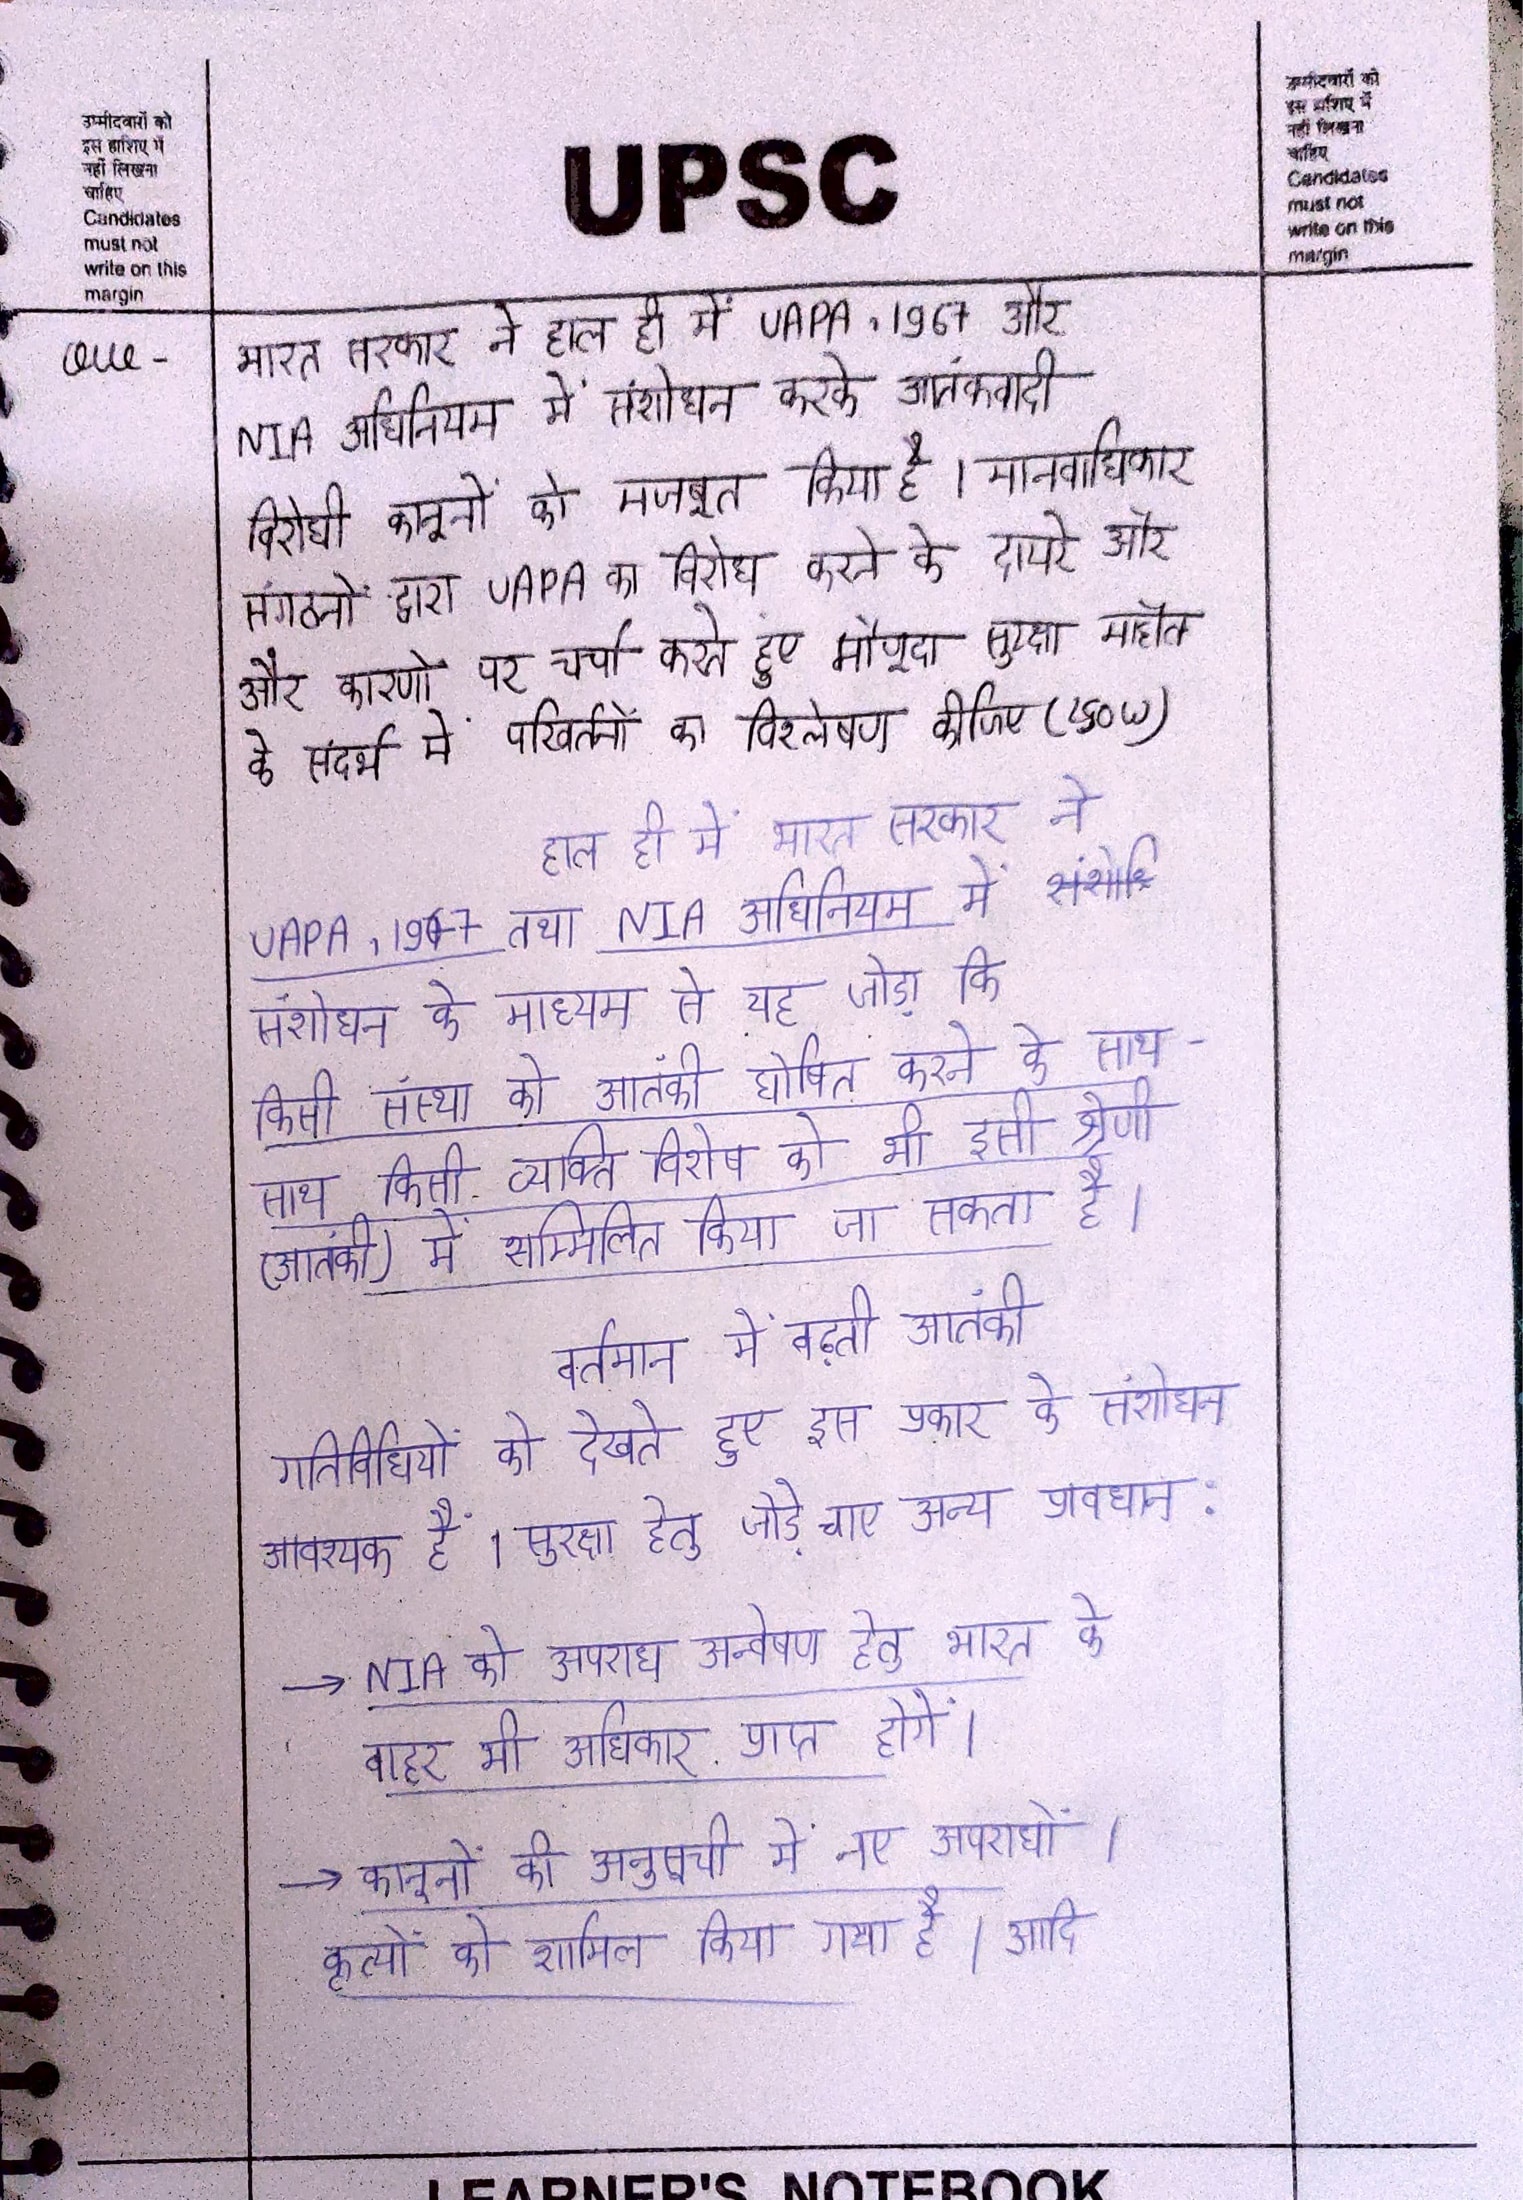 उम्मीदवारों को
इस हाशिए में
नहीं लिखना
चाहिए
Candidates
must not
write on this
margin
UPSC
उम्मीदवारों को
इस हाशिए में
नहीं लिखना
चाहिए
Candidates
must not
write on this
margin
Que -
भारत सरकार ने हाल ही में UAPA, 1967 और
NIA अधिनियम में संशोधन करके आतंकवादी
विरोधी कानूनों को मजबूत किया है । मानवाधिकार
संगठनों द्वारा UAPA का विरोध करने के दायरे और
और कारणों पर चर्चा करते हुए मौजूदा सुरक्षा माहौल
के संदर्भ में परिवर्तनों का विश्लेषण कीजिए (250W)
हाल ही में भारत सरकार ने
UAPA, 1967 तथा NIA अधिनियम में
संशोधन के माध्यम से यह जोड़ा कि
किसी संस्था को आतंकी घोषित करने के साथ -
साथ किसी व्यक्ति विशेष को भी इसी श्रेणी
(आतंकी) में सम्मिलित किया जा सकता है ।
वर्तमान में बढ़ती आतंकी
गतिविधियों को देखते हुए इस प्रकार के संशोधन
आवश्यक हैं । सुरक्षा हेतु जोड़े अन्य प्रावधान :
→ NIA को अपराध अन्वेषण हेतु भारत के
बाहर भी अधिकार प्राप्त होगें ।
→ कानूनों की अनुसूची में नए अपराधों /
कृत्यों को शामिल किया गया है । आदि
LEARNER'S NOTEBOOK